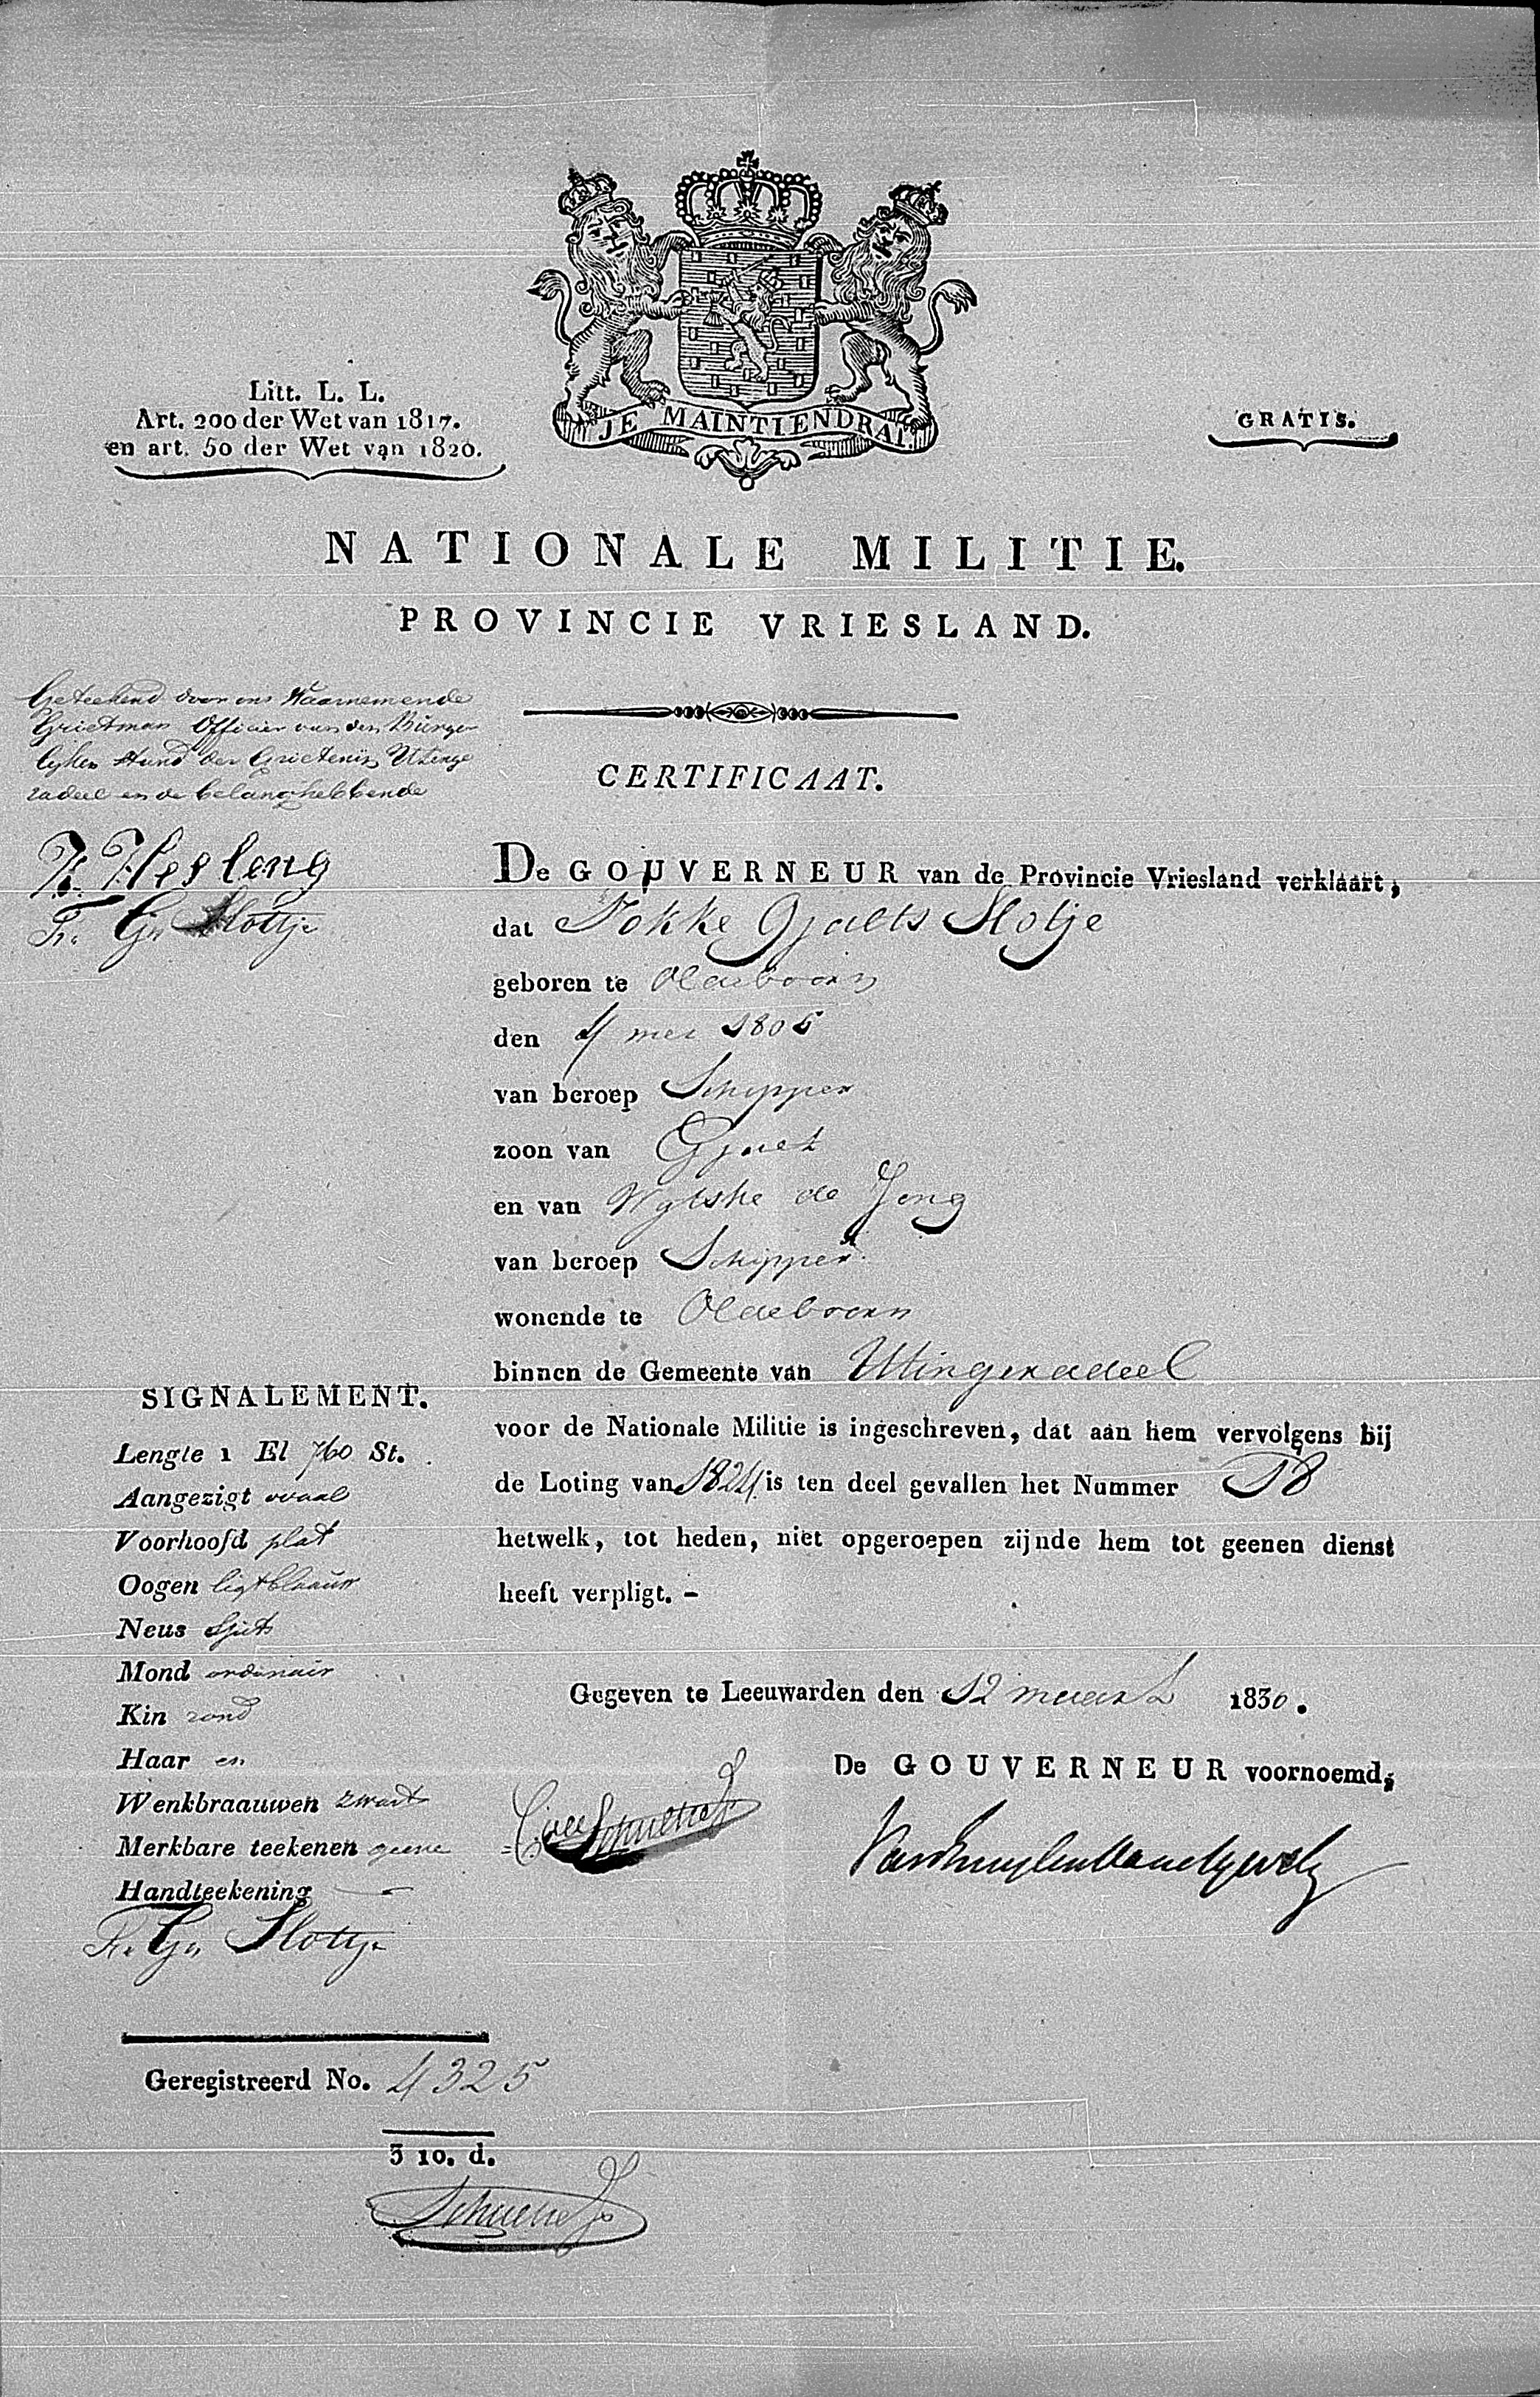 JE MAINTIENDRAI.
Litt. L. L.
Art. 200 der Wet van 1817.
en art. 50 der Wet van 1820.
GRATIS.
NATIONALE MILITIE.
PROVINCIE VRIESLAND.
Geteekend door ons Waarnemende
Grietman Officier van den Burger
lyken Stand der Grietenij Utinge
radeel en de belanghebbende
Hesling
F. G. Slottje
CERTIFICAAT.
De GOUVERNEUR van de Provincie Vriesland verklaart,
dat Fokke Gjalts Slotje
geboren te Oldeboorn
den 4 mei 1805
van beroep Schipper
zoon van Gjalt
en van Wytske de Jong
van beroep Schipper
wonende te Oldeboorn
binnen de Gemeente van Utingeradeel
voor de Nationale Militie is ingeschreven, dat aan hem vervolgens bij
de Loting van 1824 is ten deel gevallen het Nummer 18
hetwelk, tot heden, niet opgeroepen zijnde hem tot geenen dienst
heeft verpligt. -
SIGNALEMENT.
Lengte 1 El 760 St.
Aangezigt ovaal
Voorhoofd plat
Oogen ligtblaauw
Neus spits
Mond ordinair
Kin rond
Haar en
Wenkbraauwen zwart
Merkbare teekenen geene
Handteekening
F. G. Slottje
Gegeven te Leeuwarden den 12 maart 1830.
De GOUVERNEUR voornoemd,
Geregistreerd No. 4325
3 10. d.